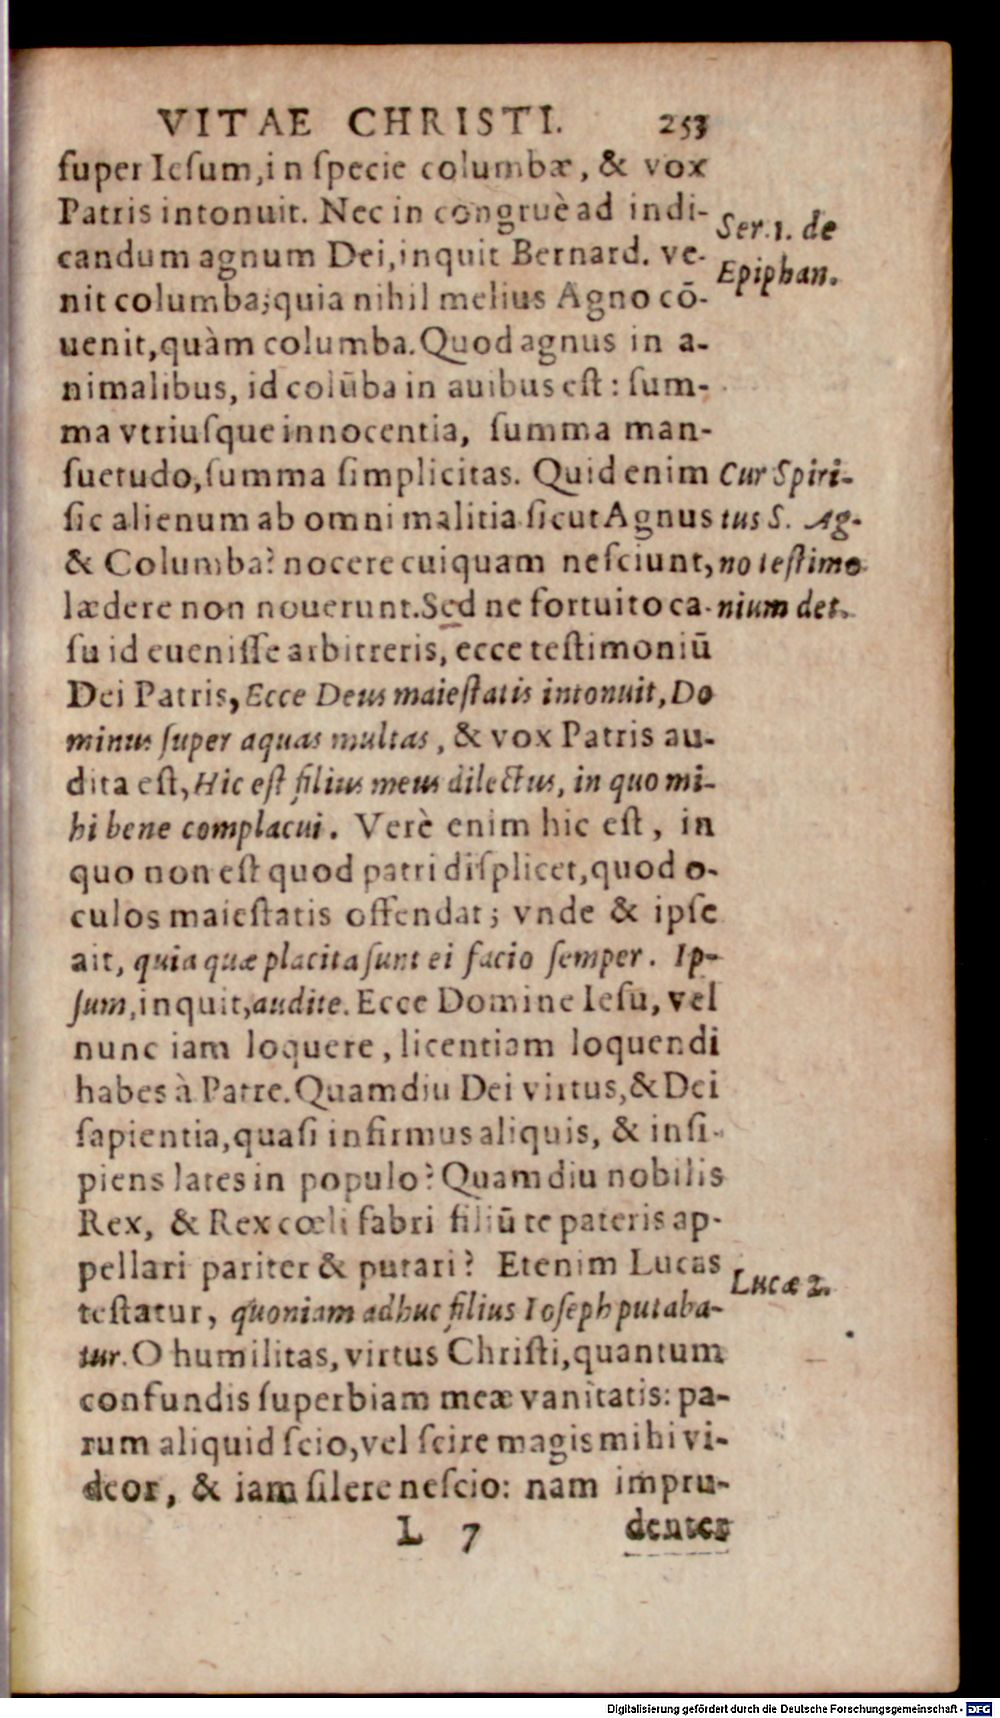 VITAE CHRISTI. 253
ſuper Ieſum, in ſpecie columbæ, & vox
Patris intonuit. Nec in congruè ad indi-
candum agnum Dei, inquit Bernard. ve-
nit columba; quia nihil melius Agno cō-
uenit, quàm columba. Quod agnus in a-
nimalibus, id colūba in auibus eſt: ſum-
ma vtriuſque innocentia, ſumma man-
ſuetudo, ſumma ſimplicitas. Quid enim
ſic alienum ab omni malitia ſicut Agnus
& Columba? nocere cuiquam neſciunt,
lædere non nouerunt. Sed ne fortuito ca-
ſu id eueniſſe arbitreris, ecce teſtimoniū
Dei Patris, Ecce Deus maieſtatis intonuit, Do
minus ſuper aquas multas, & vox Patris au-
dita eſt, Hic eſt filius meus dilectus, in quo mi-
hi bene complacui. Verè enim hic eſt, in
quo non eſt quod patri diſplicet, quod o-
culos maieſtatis offendat; vnde & ipſe
ait, quia quæ placita ſunt ei facio ſemper. Ip-
ſum, inquit, audite. Ecce Domine Ieſu, vel
nunc iam loquere, licentiam loquendi
habes à Patre. Quamdiu Dei virtus, & Dei
ſapientia, quaſi infirmus aliquis, & inſi-
piens lates in populo? Quamdiu nobilis
Rex, & Rex cœli fabri filiū te pateris ap-
pellari pariter & putari? Etenim Lucas
teſtatur, quoniam adhuc filius Ioſeph putaba-
tur. O humilitas, virtus Chriſti, quantum
confundis ſuperbiam meæ vanitatis: pa-
rum aliquid ſcio, vel ſcire magis mihi vi-
deor, & iam ſilere neſcio: nam impru-
L 7 dentes
Ser. 1. de
Epiphan.
Cur Spiri-
tus S. Ag-
no teſtimo
nium det.
Lucæ 2.
Digitalisierung gefördert durch die Deutsche Forschungsgemeinschaft - DFG